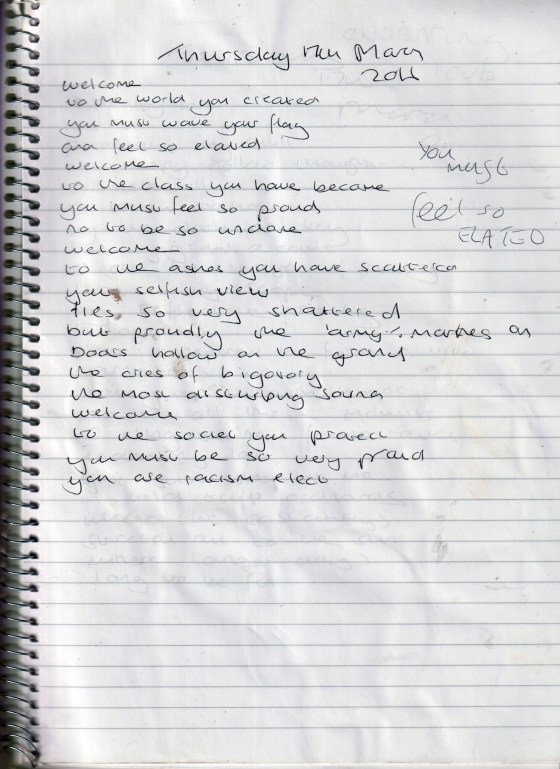 Thursday 17th May
2011
welcome
to the world you created
you must wave your flag
and feel so elated
welcome
to the class you have become
you must feel so proud
no to be so undone
welcome
to the ashes you have scattered
your selfish view
lies so very shattered
but proudly the army marches on
Doors hollow on the ground
the cries of bigotory
the most disturbing sound
welcome
to the societ you protect
you must be so very proud
you are racism elect
You
must
feel so
ELATED